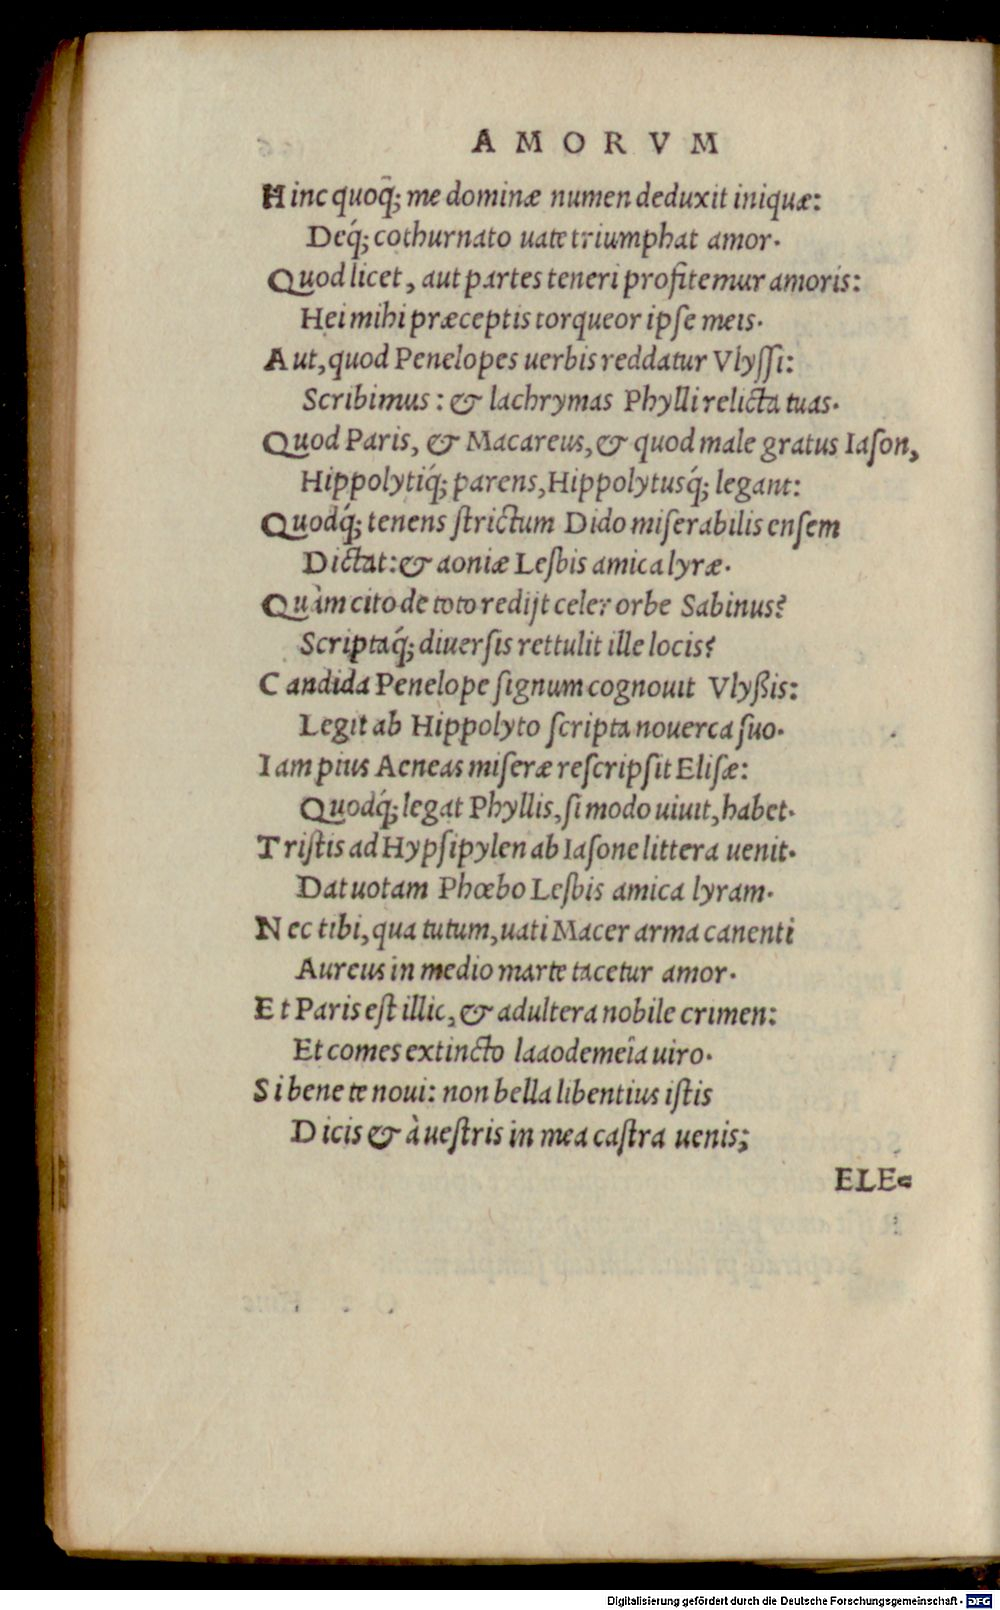 AMORVM
Hinc quoq̃; me dominæ numen deduxit iniquæ:
Deq́; cothurnato uate triumphat amor.
Quod licet, aut partes teneri profitemur amoris:
Hei mihi præceptis torqueor ipſe meis.
Aut, quod Penelopes uerbis reddatur Vlyſſi:
Scribimus: & lachrymas Phylli relicta tuas.
Quod Paris, & Macareus, & quod male gratus Iaſon,
Hippolytiq́; parens, Hippolytusq́; legant:
Quodq́; tenens ſtrictum Dido miſerabilis enſem
Dictat: & aoniæ Leſbis amica lyræ.
Quàm cito de toto redijt celer orbe Sabinus?
Scriptaq́; diuerſis rettulit ille locis?
Candida Penelope ſignum cognouit Vlyßis:
Legit ab Hippolyto ſcripta nouerca ſuo.
Iam pius Aeneas miſeræ reſcripſit Eliſæ:
Quodq́; legat Phyllis, ſi modo uiuit, habet.
Triſtis ad Hypſipylen ab Iaſone littera uenit.
Dat uotam Phœbo Leſbis amica lyram.
Nec tibi, qua tutum, uati Macer arma canenti
Aureus in medio marte tacetur amor.
Et Paris eſt illic, & adultera nobile crimen:
Et comes extincto laaodemeîa uiro.
Si bene te noui: non bella libentius iſtis
Dicis & à ueſtris in mea caſtra uenis;
ELE=
Digitalisierung gefördert durch die Deutsche Forschungsgemeinschaft - DFG